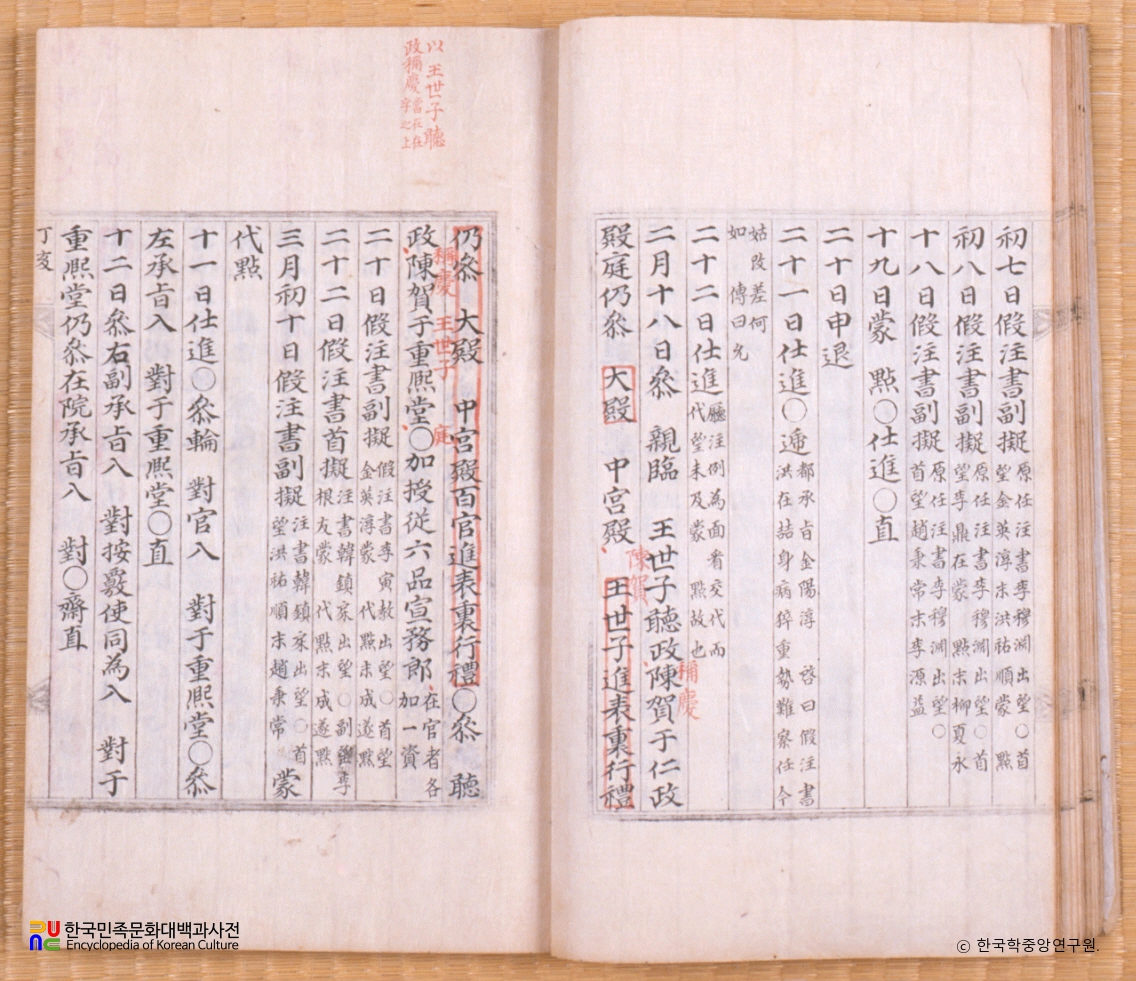 初七日假注書副擬原任注書李穆淵出望〇首望金英淳末洪祐順蒙 點
初八日假注書副擬原任注書李穆淵出望〇首望李鼎在蒙 點末柳夏永
十八日假注書副擬原任注書李穆淵出望〇首望趙秉常末李源益
十九日蒙 點〇仕進〇直
二十日申退
二十一日仕進〇逓都承旨金陽淳 啓曰假注書洪在喆身病猝重勢難察任今
姑改差何如 傳曰允
二十二日仕進廳注例為面看交代而代望未及蒙 點故也
二月十八日叅 親臨 王世子聽政陳賀于仁政
稱慶
殿庭仍叅 大殿 中宮殿 王世子進表裏行禮
陳賀
以 王世子聽
政稱慶當長在字之上
仍叅 大殿 中宮殿百官進表裏行禮〇叅 聽
稱慶 王世子 庭
政陳賀于重熙堂〇加授從六品宣務郎在官者各加一資
二十日假注書副擬假注書李寅赦出望〇首望金英淳蒙 代點末成遂默
二十二日假注書首擬注書韓鎮家出望〇副李根友蒙 代點末成遂默
三月初十日假注書副擬注書韓鎮家出望〇首望洪祐順末趙秉常 蒙
代點
十一日仕進〇叅輪 對官入 對于重熙堂〇叅
左承旨入 對于重熙堂〇直
十二日叅右副承旨入 對按覈使同為入 對于
重熙堂仍叅在院承旨入 對〇齋直
丁亥
한국민족문화대백과사전
Encyclopedia of Korean Culture
© 한국학중앙연구원.